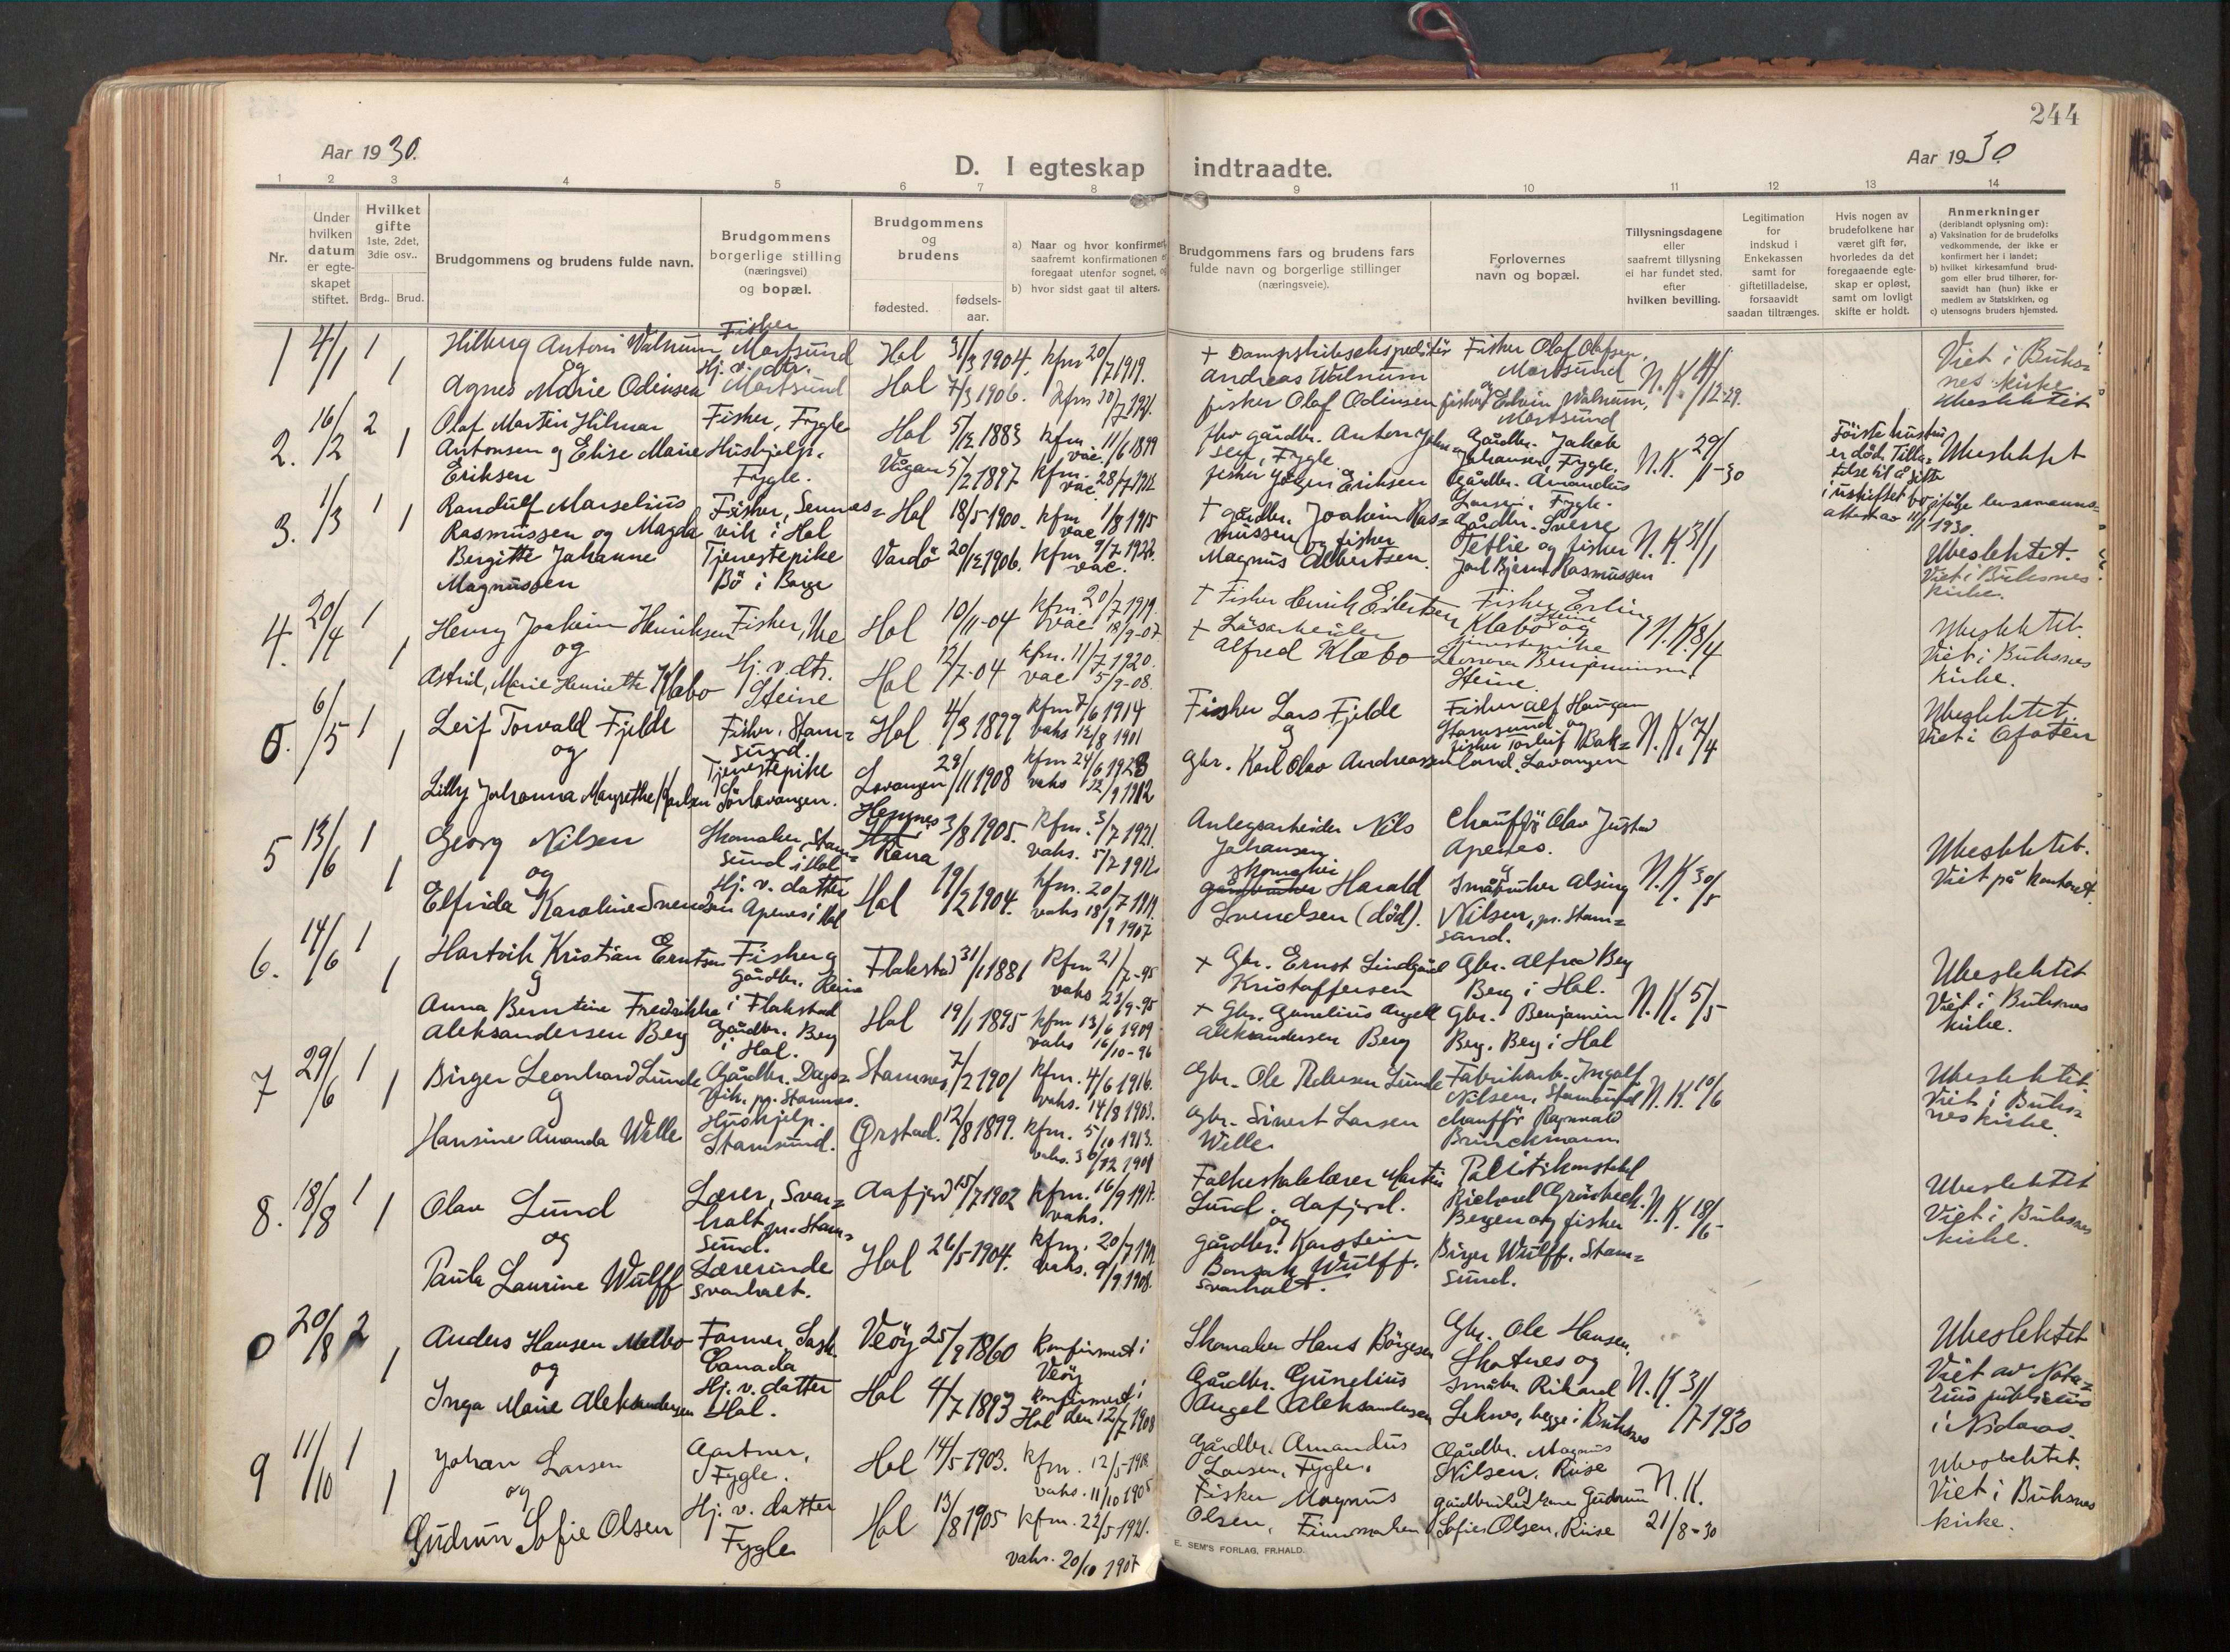 244
Aar 1930.
D. I egteskap indtraadte.
Aar 1930
1 2 3 4 5 6 7 8 9 10 11 12 13 14
Nr.
Under
hvilken
datum
er egte-
skapet
stiftet.
Hvilket
gifte
1ste, 2det,
3die osv..
Brdg.. Brud.
Brudgommens og brudens fulde navn.
Brudgommens
borgerlige stilling
(næringsvei)
og bopæl.
Brudgommens
og
brudens
fødested.
fødsels-
aar.
a) Naar og hvor konfirmert
saafremt konfirmationen
foregaat utenfor sognet,
b) hvor sidst gaat til alters.
Brudgommens fars og brudens fars
fulde navn og borgerlige stillinger
(næringsveie).
Forlovernes
navn og bopæl.
Tillysningsdagene
eller
saafremt tillysning
ei har fundet sted.
efter
hvilken bevilling.
Legitimation
for
indskud i
Enkekassen
samt for
giftetilladelse,
forsaavidt
saadan tiltrænges.
Hvis nogen av
brudefolkene har
været gift før,
hvorledes da det
foregaaende egte-
skap er opløst,
samt om lovligt
skifte er holdt.
Anmerkninger
(deriblandt oplysning om):
a) Vaksination for de brudefolks
vedkommende, der ikke er
konfirmert her i landet;
b) hvilket kirkesamfund brud-
gom eller brud tilhører, for-
saavidt han (hun) ikke er
medlem av Statskirken, og
c) utensogns bruders hjemsted.
1 4/1 1 1
Hilberg Antoni Walnum
og
Agnes Marie Odinsen
Fisker
Mortsund
Hj. v. dtr.
Mortsund
Hol 31/3 1904. kfm 20/7 1919.
Hol 7/3 1906. kfm 10/7 1921.
+ Dampskibsekspeditør
Andreas Walnum
fisker Olaf Odinsen
Fisker Olaf Olafsen,
Mortsund
og
fisker Edvin Walnum,
Mortsund
N.K. 4/12-29.
Viet i Buks=
nes kirke
Ubeslektet
2. 16/2 2 1
Olaf Martin Hilmar
Antonsen og Elise Marie
Eriksen
Fisker, Fygle
Hushjelp.
Fygle.
Hol 5/12 1883 kfm. 11/6 1899
vac.
Vågan 5/2 1897 kfm. 28/7 1912
vac.
fhv gårdbr. Anton Johan
sen, Fygle
fisker Jörgen Eriksen
Gårdbr. Jakob
Johansen, Fygle.
Gårdbr. Amandus
Larsen, Fygle.
N.K. 29/1-30
Förste hustru
er död. Tilla=
telse til å sitte
i uskiftet bo ifölge lensmanns=
attest av 11/1 1930.
Ubeslektet
3. 1/3 1 1
Randulf Marselius
Rasmussen og Magda
Bergitte Johanne
Magnussen
Fisker, Sennes=
vik i Hol
Tjenestepike
Bö i Borge
Hol 18/5 1900. kfm 1/8 1915
vac
Vardö 20/12 1906. kfm. 9/7 1922.
vac.
+ gårdbr. Joakim Ras=
mussen
og fisker
Magnus Albertsen.
Gårdbr. Sverre
Tetlie og fisker
Joel Bjerne Rasmussen
N.K. 31/1
Ubeslektet.
Viet i Buksnes
kirke.
4. 20/4 1 1
Henry Joakim Henriksen
og
Astrid, Marie Henriette Klæbo
Fisker, Ure
Hj. v. dtr.
Steine
Hol 10/11-04 kfm. 20/7 1919.
vac 18/9-07.
Hol 12/7-04 kfm. 11/7 1920.
vac 5/9-08.
+ Fisker Henrik Eilertsen
+ Låsarbeider
Alfred Klæbo
Fisker Erling
Klæbo og
Steine
tjenestepike
Leonora Benjaminsen
Steine
N.K. 8/4
Ubeslektet.
Viet i Buksnes
kirke.
0. 6/5 1 1
Leif Torvald Fjelde
og
Lilly Johanna Margrethe Karlsen
Fisker, Stam=
sund.
Tjenestepike
Sörlavangen.
Hol 4/3 1899 kfm 7/6 1914
vaks 12/8 1901
Lavangen 29/11 1908 kfm 24/6 1923
vaks 12/9 1912
Fisker Lars Fjelde
og
Gbr. Karl Olav Andreassen
Fisker Alf Haugan
Stamsund og
fisker Torleif Bak=
land, Lavangen
N.K. 7/4
Ubeslektet.
Viet i Ofoten
5 13/6 1 1
Georg Nilsen
og
Elfrida Karoline Svendsen
Skomaker, Stam=
sund i Hol
Hj. v. datter
Apenes i Hol
Hemnes
Rana
3/8 1905. kfm. 3/7 1921.
vaks. 5/7 1912
Hol 19/2 1904. kfm. 20/7 1919.
vaks 18/9 1907
Anlegsarbeider Nils
Johansen
skomaker
Harald
Svendsen (död).
Chauffør Olav Justad
Apenes.
og
Småbruker Alsing
Nilsen, pr. Stam=
sund.
N.K. 30/5
Ubeslektet.
Viet på kontoret.
6. 14/6 1 1
Hartvik Kristian Erntsen
og
Anna Berntine Fredrikke
Aleksandersen Berg
Fisker og
gårdbr. Reine
i Flakstad
Gårdbr. Berg
i Hol.
Flakstad 31/1 1881 kfm 21/7-95
vaks 23/9-95
Hol 19/1 1895 kfm 13/6 1909
vaks 16/10-96
+ Gbr. Ernst Lindgård
Kristoffersen
+ Gbr. Gunelius Angell
Aleksandersen Berg
Gbr. Alfred Berg
Berg i Hol.
Gbr. Benjamin
Berg. Berg i Hol
N.K. 5/5
Ubeslektet
Viet i Buksnes
kirke.
7 29/6 1 1
Birger Leonhard Lunde
og
Hansine Amanda Welle
Gårdbr. Dags=
vik, pr. Stamnes.
Hushjelp.
Stamsund.
Stamnes 7/2 1901 kfm. 4/6 1916.
vaks. 14/8 1903.
Ørstad. 12/8 1899. kfm. 5/10 1913.
vaks. 30/12 1901
Gbr. Ole Pedersen Lunde
Gbr. Sivert Larsen
Welle
Fabrikarb. Ingolf
Nilsen, Stamsund
Chauffør Ragnvald
Brinckmann
N.K. 10/6
Ubeslektet.
Viet i Buks=
nes kirke.
8. 18/8 1 1
Olav Lund
og
Paula Laurine Wulff
Lærer, Svar=
holt pr. Stam=
sund.
Lærerinde
Svarholt.
Aafjord 15/7 1902 kfm. 16/9 1917.
vaks.
Hol 26/5-1904. kfm. 20/7 1919.
vaks. 9/9 1908.
Folkeskolelærer Martin
Lund. Aafjord.
og
gårdbr. Karstein
Bonsak Wulff.
Svarholt.
Politikonstabel
Richard Grönbeck.
Bergen og fisker
Birger Wulff. Stam=
sund.
N.K. 18/6
Ubeslektet
Viet i Buksnes
kirke.
0 20/8 2 1
Anders Hansen Melbo
og
Inga Marie Aleksandersen
Farmer, Sask.
Canada
Hj. v. datter
Hol.
Veöy 25/9 1860 konfirmert i
Veöy
Hol 4/7 1893 konfirmert i
Hol den 12/7 1908
Skomaker Hans Börgesen
Gårdbr. Gunelius
Angel Aleksandersen
Gbr. Ole Hansen,
Skotnes og
småbr. Rikard
Leknes, begge i Buksnes
N.K. 31/7 1930
Ubeslektet
Viet av Nota=
rius publicus
i Nidaros.
9 11/10 1 1
Johan Larsen
og
Gudrun Sofie Olsen
Gartner,
Fygle.
Hj. v. datter
Fygle
Hol 14/5-1903. kfm. 12/5-1918.
vaks. 11/10 1905
Hol 13/8 1905 kfm. 22/5 1921.
vaks. 20/10 1907
Gårdbr. Amandus
Larsen, Fygle,
Fisker Magnus
Olsen, Finnmarken
Gårdbr. Magnus
Nilsen. Riise
og
gårdbrukerkone Gudrun
Sofie Olsen, Riise
N.K.
21/8-30
Ubeslektet.
Viet i Buksnes
kirke.
E. SEM'S FORLAG, FR.HALD.